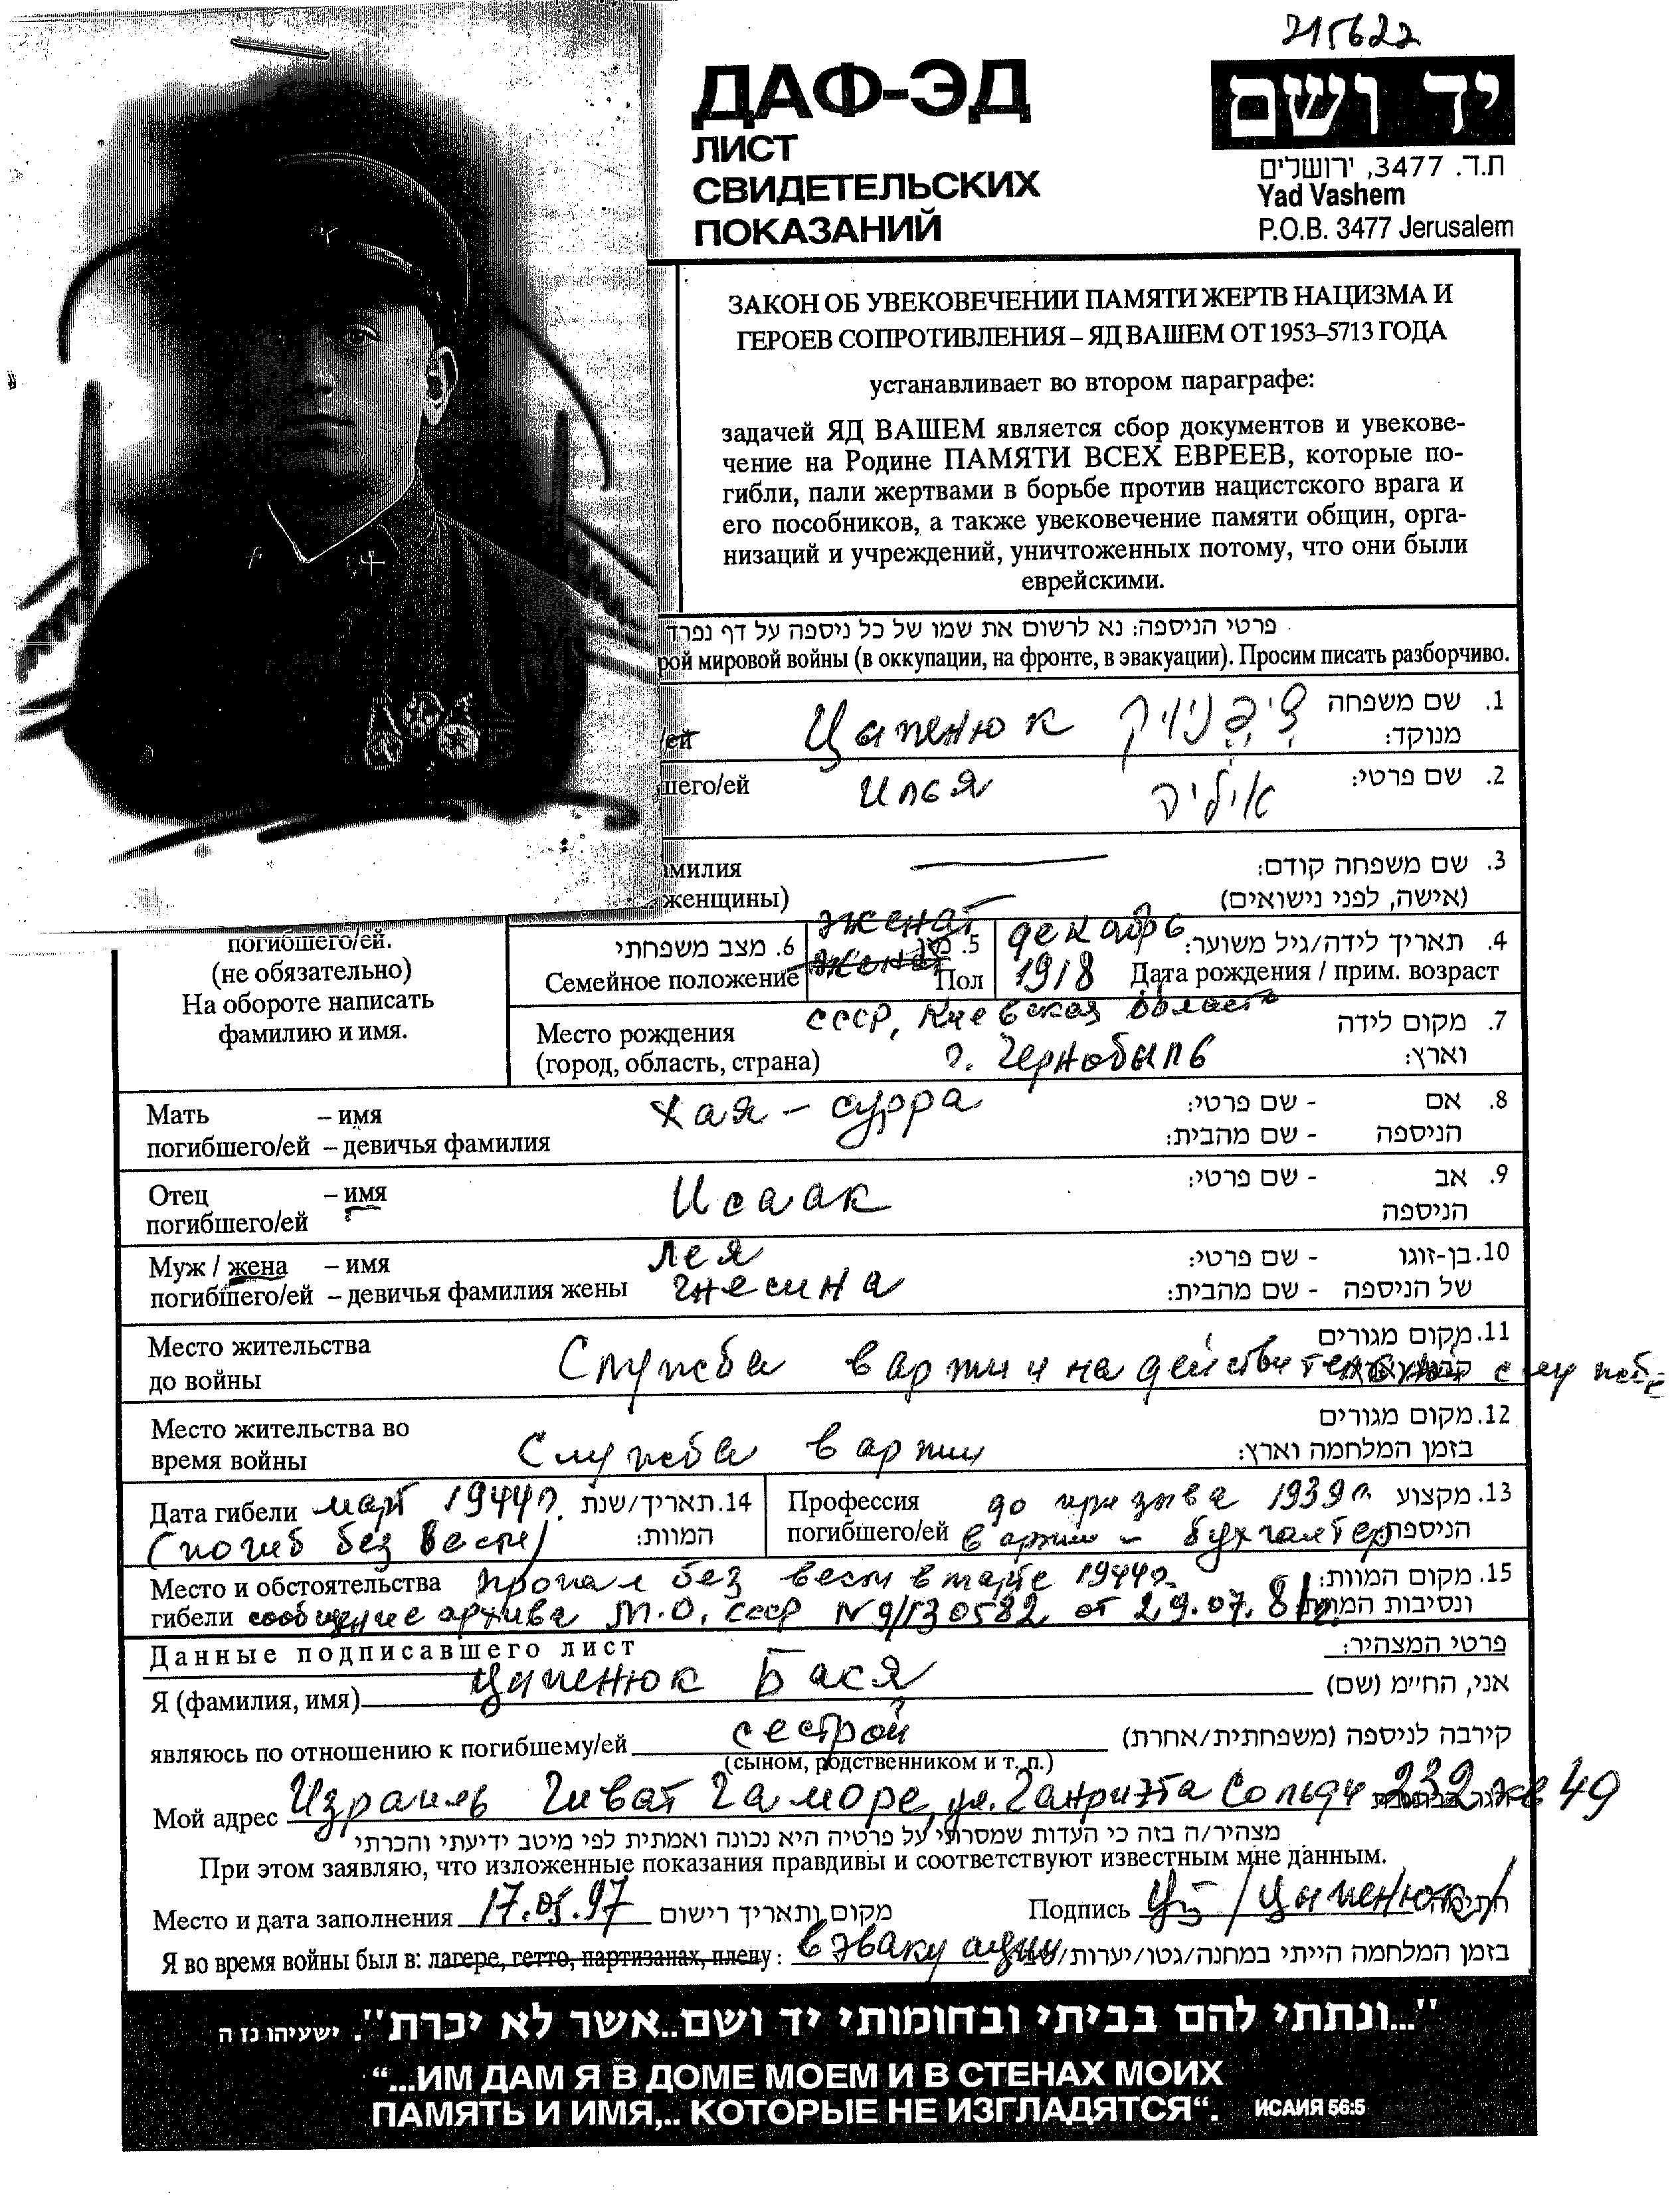 215622
ДАФ-ЭД
ЛИСТ
СВИДЕТЕЛЬСКИХ
ПОКАЗАНИЙ
יד ושם
ת.ד. 3477, ירושלים
Yad Vashem
P.O.B. 3477 Jerusalem
ЗАКОН ОБ УВЕКОВЕЧЕНИИ ПАМЯТИ ЖЕРТВ НАЦИЗМА И
ГЕРОЕВ СОПРОТИВЛЕНИЯ – ЯД ВАШЕМ ОТ 1953–5713 ГОДА
устанавливает во втором параграфе:
задачей ЯД ВАШЕМ является сбор документов и увекове-
чение на Родине ПАМЯТИ ВСЕХ ЕВРЕЕВ, которые по-
гибли, пали жертвами в борьбе против нацистского врага и
его пособников, а также увековечение памяти общин, орга-
низаций и учреждений, уничтоженных потому, что они были
еврейскими.
פרטי הניספה: נא לרשום את שמו של כל ניספה על דף נפרד
рой мировой войны (в оккупации, на фронте, в эвакуации). Просим писать разборчиво.
1. שם משפחה
מנוקד:
/ей Цапенюк
2. שם פרטי:
шего/ей Илья איליה
3. שם משפחה קודם:
(אישה, לפני נישואים)
милия
женщины)
погибшего/ей.
(не обязательно)
На обороте написать
фамилию и имя.
6. מצב משפחתי
Семейное положение
женат
женат
5. מין
Пол
4. תאריך לידה/גיל משוער:
Дата рождения / прим. возраст
декабрь
1918
7. מקום לידה
וארץ:
Место рождения СССР, Киевская область
(город, область, страна) г. Чернобыль
8. אם - שם פרטי:
הניספה - שם מהבית:
Мать – имя Хая-Сурра
погибшего/ей – девичья фамилия
9. אב - שם פרטי:
הניספה
Отец – имя Исаак
погибшего/ей
10. בן-זוגו - שם פרטי:
של הניספה - שם מהבית:
Муж / жена – имя Лея
погибшего/ей – девичья фамилия жены Гнесина
11. מקום מגורים
Место жительства
до войны Служба в армии на действительной службе
12. מקום מגורים
בזמן המלחמה וארץ:
Место жительства во
время войны Служба в армии
14. תאריך/שנת
המוות:
Дата гибели март 1944г.
(погиб без вести)
13. מקצוע
הניספה
Профессия до призыва 1939г.
погибшего/ей в армию – бухгалтер
15. מקום המוות:
ונסיבות המוות
Место и обстоятельства пропал без вести в марте 1944г.
гибели сообщение архива М.О. СССР N 9/130582 от 29.07.81г.
פרטי המצהיר:
Данные подписавшего лист
אני, החי"מ (שם)
Я (фамилия, имя) Цапенюк Бася
קירבה לניספה (משפחתית/אחרת)
являюсь по отношению к погибшему/ей сестрой
(сыном, родственником и т. п.)
Мой адрес Израиль Гиват Гаморе, ул. Ганриэта Сольди 232 кв 49
מצהיר/ה בזה כי העדות שמסרתי על פרטיה היא נכונה ואמתית לפי מיטב ידיעתי והכרתי
При этом заявляю, что изложенные показания правдивы и соответствуют известным мне данным.
Место и дата заполнения 17.05.97 מקום ותאריך רישום Подпись /Цапенюк/
Я во время войны был в: лагере, гетто, партизанах, плену: в эвакуации בזמן המלחמה הייתי במחנה/גטו/יערות/
"...ונתתי להם בביתי ובחומותי יד ושם..אשר לא יכרת". ישעיהו נז ה
“...ИМ ДАМ Я В ДОМЕ МОЕМ И В СТЕНАХ МОИХ
ПАМЯТЬ И ИМЯ,.. КОТОРЫЕ НЕ ИЗГЛАДЯТСЯ“. ИСАИЯ 56:5